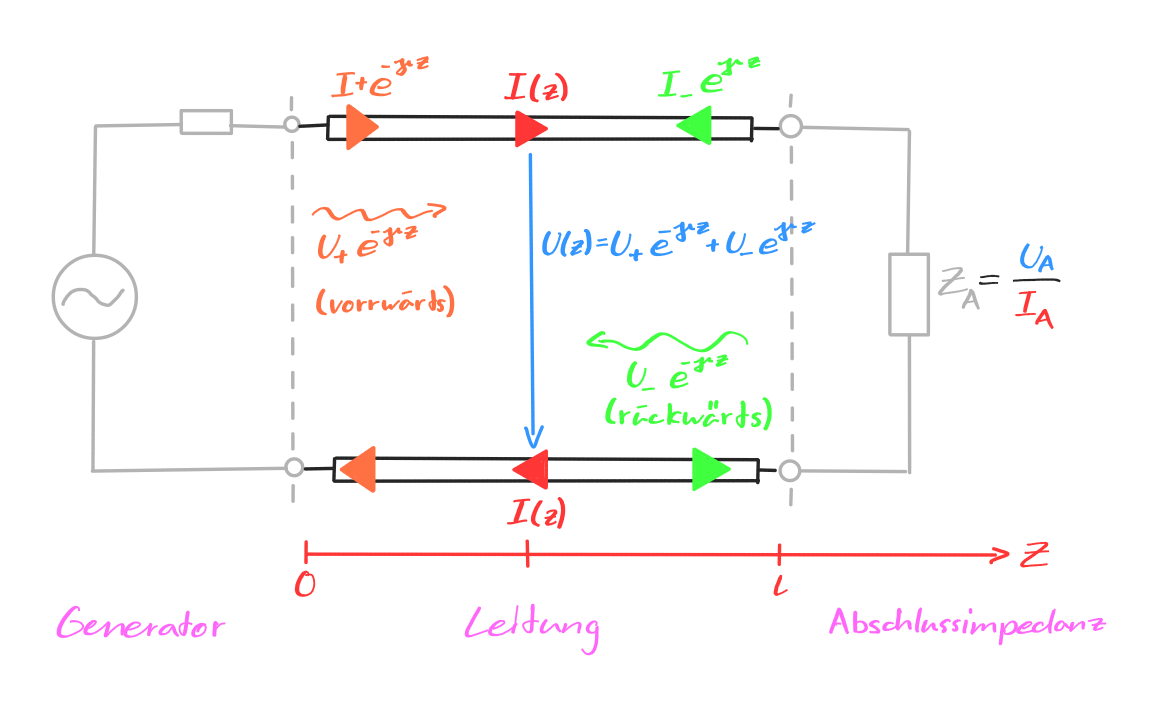 I+e^-γz
I(z)
I_- e^γz
U₊ e^-γz
(vorrwärts)
U(z)=U₊ e^-γz + U_- e^γz
Z_A = U_A / I_A
U_- e^-γz
(rückwärts)
I(z)
z
0
l
Generator
Leitung
Abschlussimpedanz